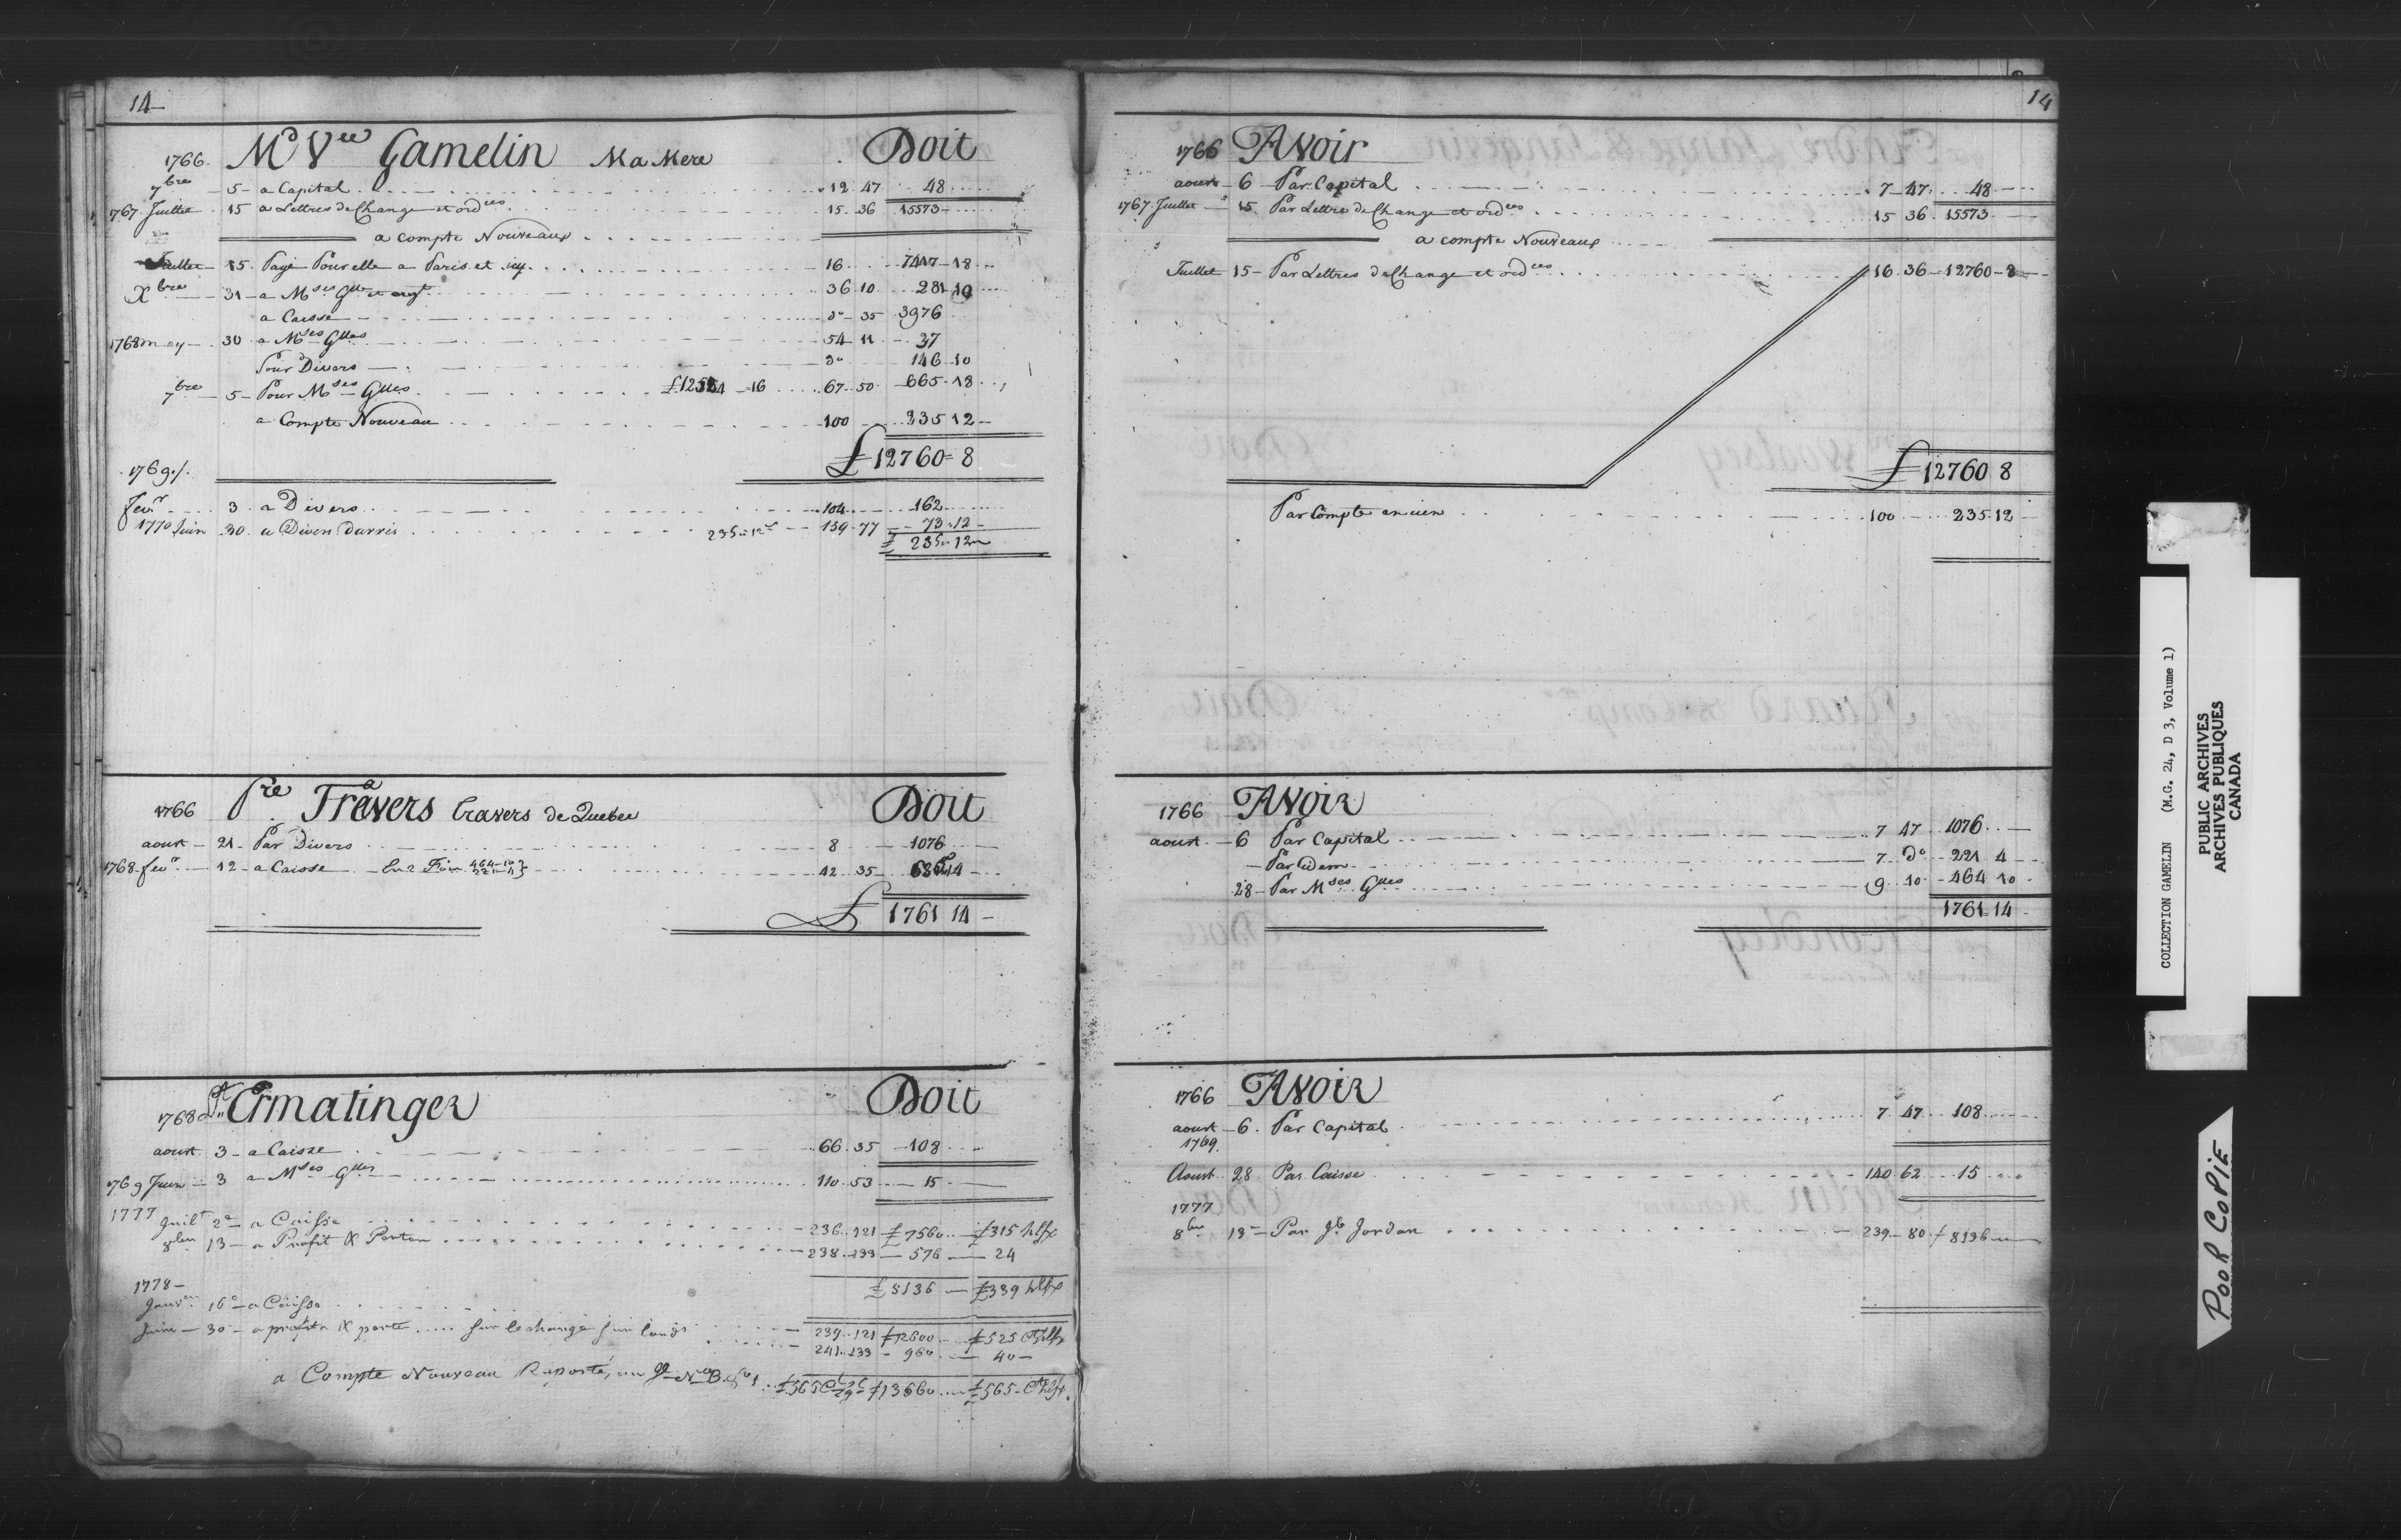 14
1766. Md Vee Gamelin Ma Mere Doit
7bre 5 - a Capital 12 47 48
1767 Juillet 15 a Lettres de Change et ordces 15 36 15573
a compte Nouveaux
Juillet 15 Payé Pour elle a Paris et icy 16 7417 18
Xbre 31 - a Mses Glles et argt 36 10 281 19
a Caisse do 35 3976
1768 may 30 a Mses Glles 54 11 37
Pour Divers do 146 10
7bre 5 - Pour Mses Glles £12524 16 67 50 665 18
a Compte Nouveau 100 235 12
£ 12760 = 8
1769
fevr 3 a Divers 104 162
1770 Juin 30 a Divers 235 " 12 159 77 73 12
£ 235 " 12
1766 Pre Travers travers de Quebec Doit
aoust 21 - Par Divers 8 1076
1768 fevr 12 - a Caisse 464 - 10 221 - 4 } 42 35 685 14
£ 1761 14
1768 Ermatinger Doit
aoust 3 - a Caisse 66 35 108
1769 Juin 3 a Mses Glles 110 53 15
1777
Juilt 2 - a Caisse 236 121 £ 7560 £315 hlfx
8bre 13 - a Profit & Perte 238 133 576 24
£ 8136 £339 hlfx
1778 -
Janvr 16 - a Caisse
Juin 30 - a profit & perte sur lechange 239 121 £12600 £525 Ct hlfx
241 133 960 40
a Compte Nouveau Raporté, au Gd No B. fo 1 £565 £13560 £565 - Ct hlfx
14
1766 Avoir
aoust 6 Par Capital 7 47 48
1767 Juillet 15 Par Lettre de Change et ordces 15 36 15573
a compte Nouveaux
Juillet 15 - Par Lettres de Change et ordces 16 36 12760 - 8
£ 12760 8
Par Compte ancien 100 235 12
1766 Avoir
aoust 6 Par Capital 7 47 1076
Par idem 7 do 221 4
28 - Par Mses Glles 9 10 464 10
1761 14
1766 Avoir
aoust 6. Par Capital 7 47 108
1769
Aoust 28 Par Caisse 140 62 15 " "
1777
8bre 13 - Par Jb Jordan 239 - 80 £ 8136
COLLECTION GAMELIN (M.G. 24, D 3, Volume 1)
PUBLIC ARCHIVES
ARCHIVES PUBLIQUES
CANADA
POOR COPIE